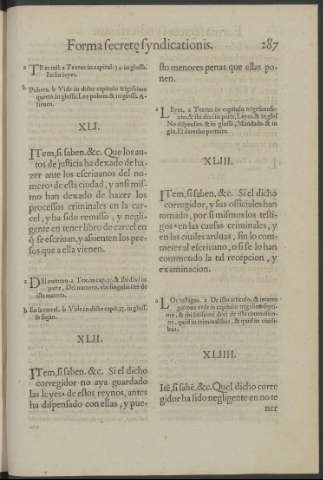 Forma secretę syndicationis. 287
a TEn mil. a Textus in capitul. 34. in glossa.
En sus leyes.
b Pobres. b Vide in dicto capitulo trigesimo
quarto in glossa. Los pobres. & in glossa. A-
XLI.
ITem, si saben. &c. Que los au-
tos de justicia ha dexado de ha
zer ante los escriuanos del nu-
mero a de esta ciudad, y ansi mis-
mo han dexado de hazer los
procesos criminales en la car-
cel, y ha sido remisso, y negli-
gente en tener libro de carcel en
q̃ se escriuan, y assienten los pre-
sos que a ella vienen.
a DEl numero. a Tex. in cap. 37. & ibi dixi in
parte, Del numero. vbi singulariter de
isto numero.
b En la carcel. b Vide in dicto cap. 37. in gloss.
XLII.
ITem, si saben. &c. Si el dicho
corregidor no aya guardado
las leyes a de estos reynos, antes
ha dispensado con ellas, y pue-
sto menores penas que ellas po-
nen.
a LEyes. a Textus in capitulo trigesimo
& ibi dixi in parte, Leyes. & in glos.
No dispensen. & in glossa, Mandado. & in
XLIII.
ITem, si saben, &c. Si el dicho
corregidor, y sus officiales han
tomado, por si mismos los testi-
gos a en las causas criminales, y
en las ciuiles arduas, sin lo com-
meter al escriuano, o si se lo han
cometido la tal recepcion, y
examinacion.
a LOs testigos. a De isto articulo, & interro
gatione vide in capitulo trigesimo
& ibi latissime dixi de ista commission-
ne, quid in criminalibus, & quid in ciuili-
bus.
XLIIII.
Itẽ, si sabẽ, &c. Quel dicho corre
gidor ha sido negligente en no te
ner